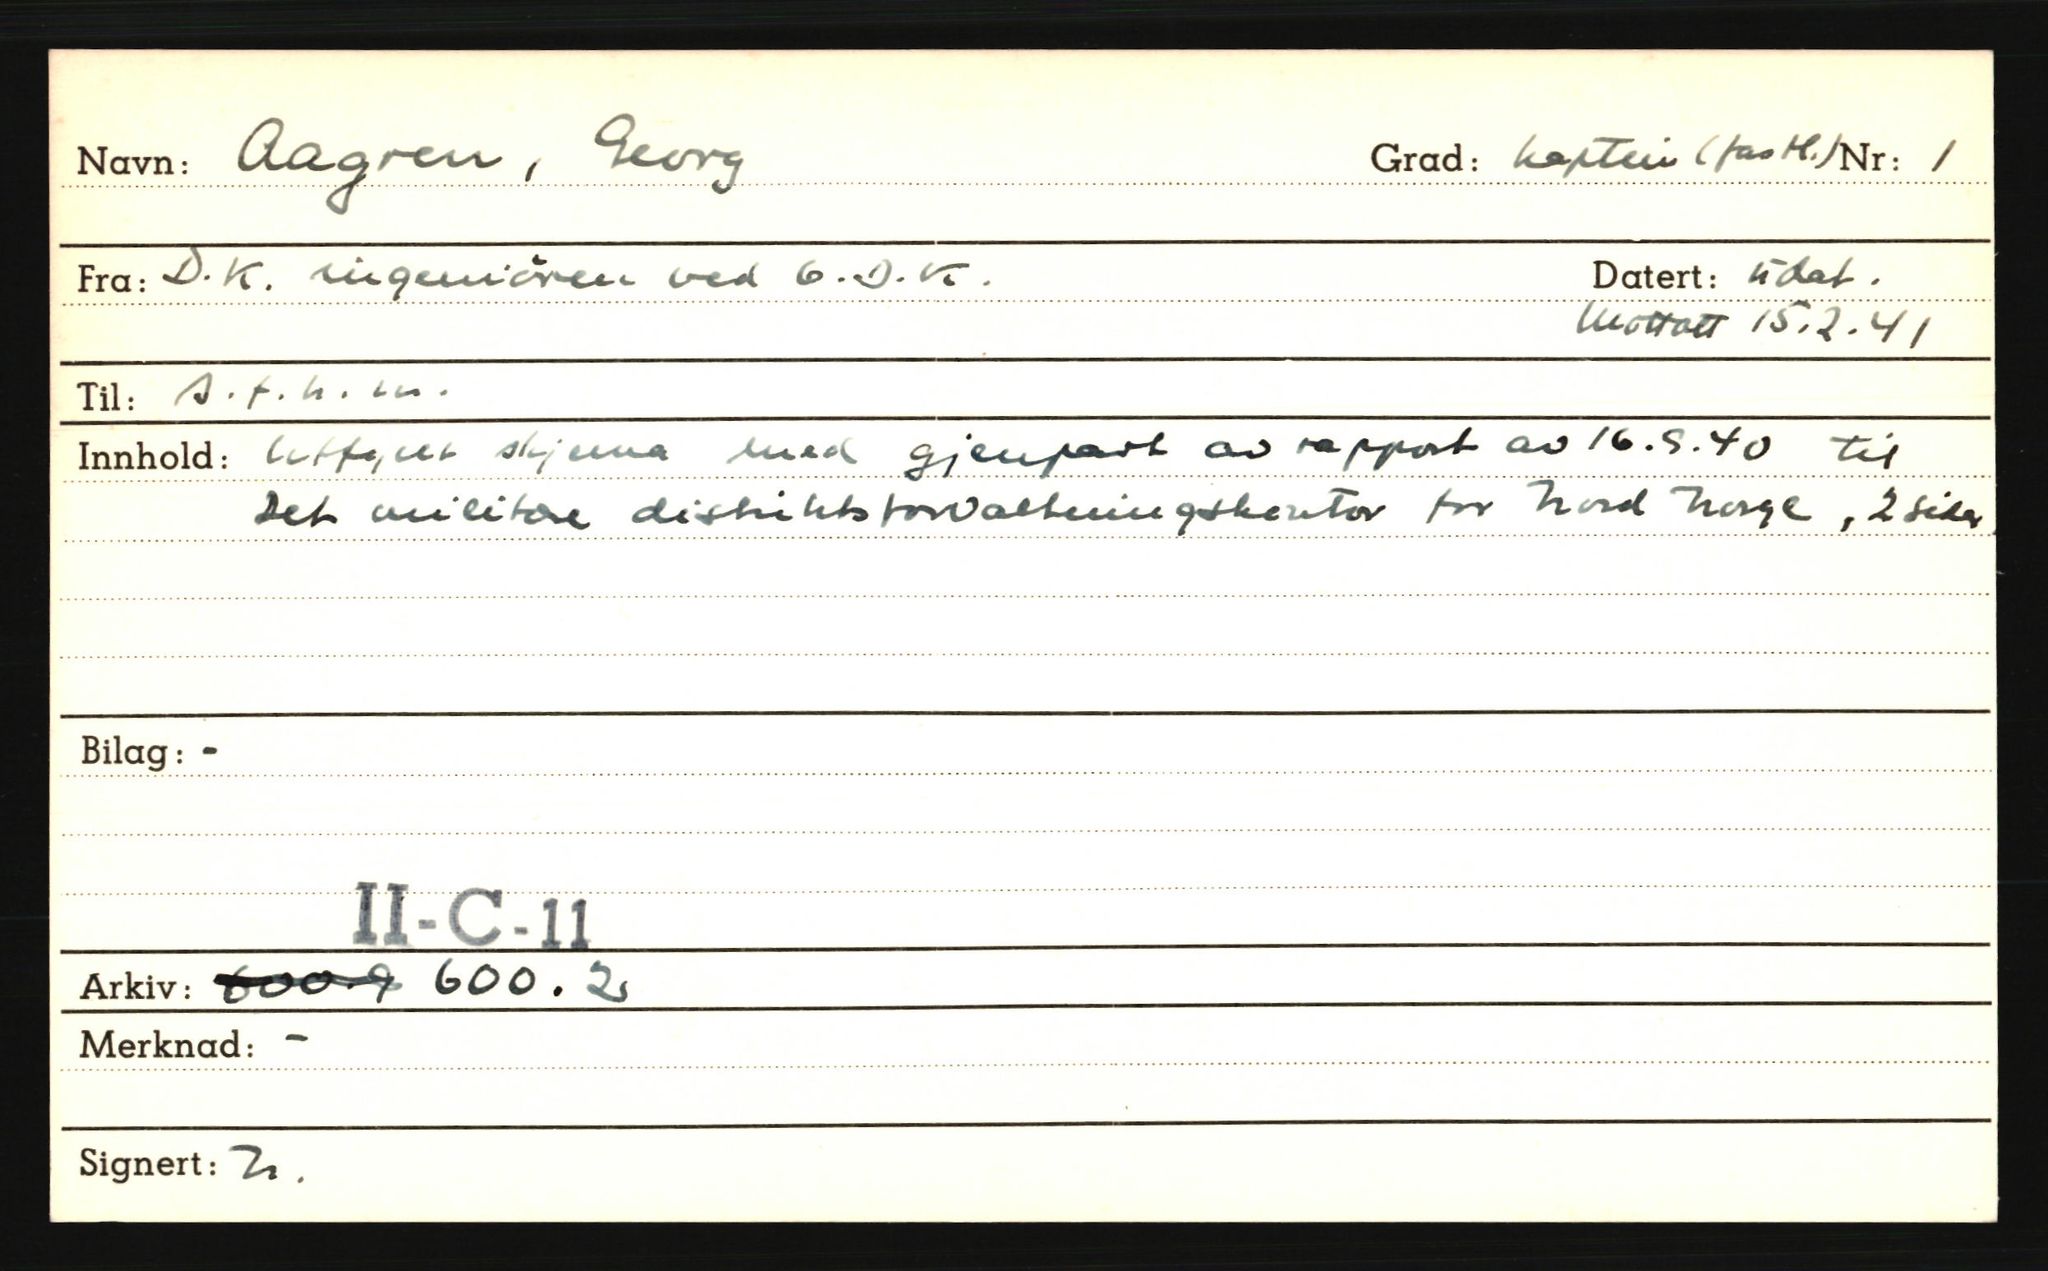 Navn: Aagren, Georg Grad: kaptein (fastl.) Nr: 1
Fra: D.K. ingeniören ved 6.D.K. Datert: udat.
Mottatt 15.2.41
Til: s.f.h.m.
Innhold: Utfylt skjema med gjenpart av rapport av 16.9.40 til
Det militære distriktsforvaltningskontor for Nord Norge, 2 sider
Bilag: -
II-C-11
Arkiv: 600.9 600.2
Merknad: -
Signert: N.